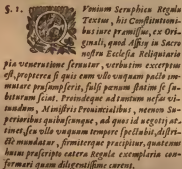 §. 1.
Omnium Seraphicæ Regulæ
Textus, his Constitutioni-
bus iure præmissus, ex Ori-
ginali, quod Assisij in Sacro
nostræ Ecclesiæ Reliquiario
pia veneratione seruatur, verbatim exceptus
est, propterea si quis eum vllo vnquam pacto im-
mutare præsumpserit, falsi pœnam statim se su-
biturum sciat. Proindeque ad tantum nefas vi-
tandum, Ministris Prouincialibus, necnon Su-
perioribus quibuscunque, ad quos id negotij at-
tinet, seu vllo vnquam tempore spectabit, distri-
ctè mandatur, firmiterque præcipitur, quatenus
huius præscripto cætera Regulæ exemplaria con-
formari quàm diligentissimè curent.